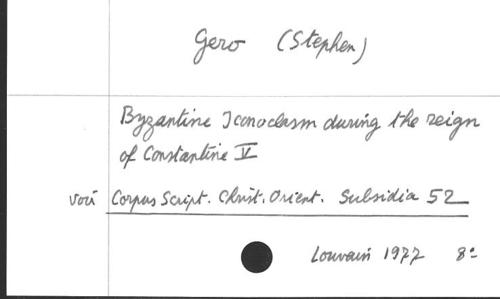 Gero (Stephen)
Byzantine Iconoclasm during the reign
of Constantine V
voir Corpus Script. Christ. Orient. Subsidia 52
Louvain 1977 8°